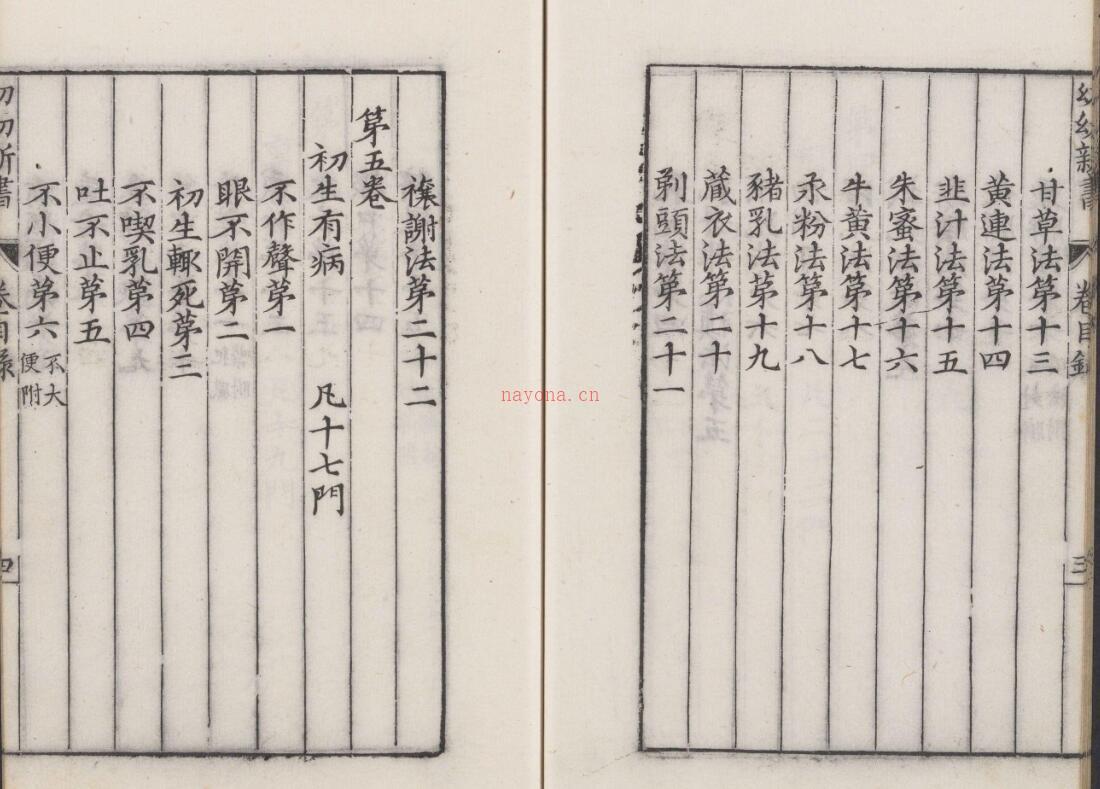 幼幼新書
卷目錄
三
甘草法第十三
黃連法第十四
韭汁法第十五
朱蜜法第十六
牛黃法第十七
汞粉法第十八
豬乳法第十九
蔵衣法第二十
剃頭法第二十一
禳謝法第二十二
第五卷
初生有病 凡十七門
不作聲第一
眼不開第二
初生輒死第三
不喫乳第四
吐不止第五
不小便第六 不大便附
四
nayona.cn